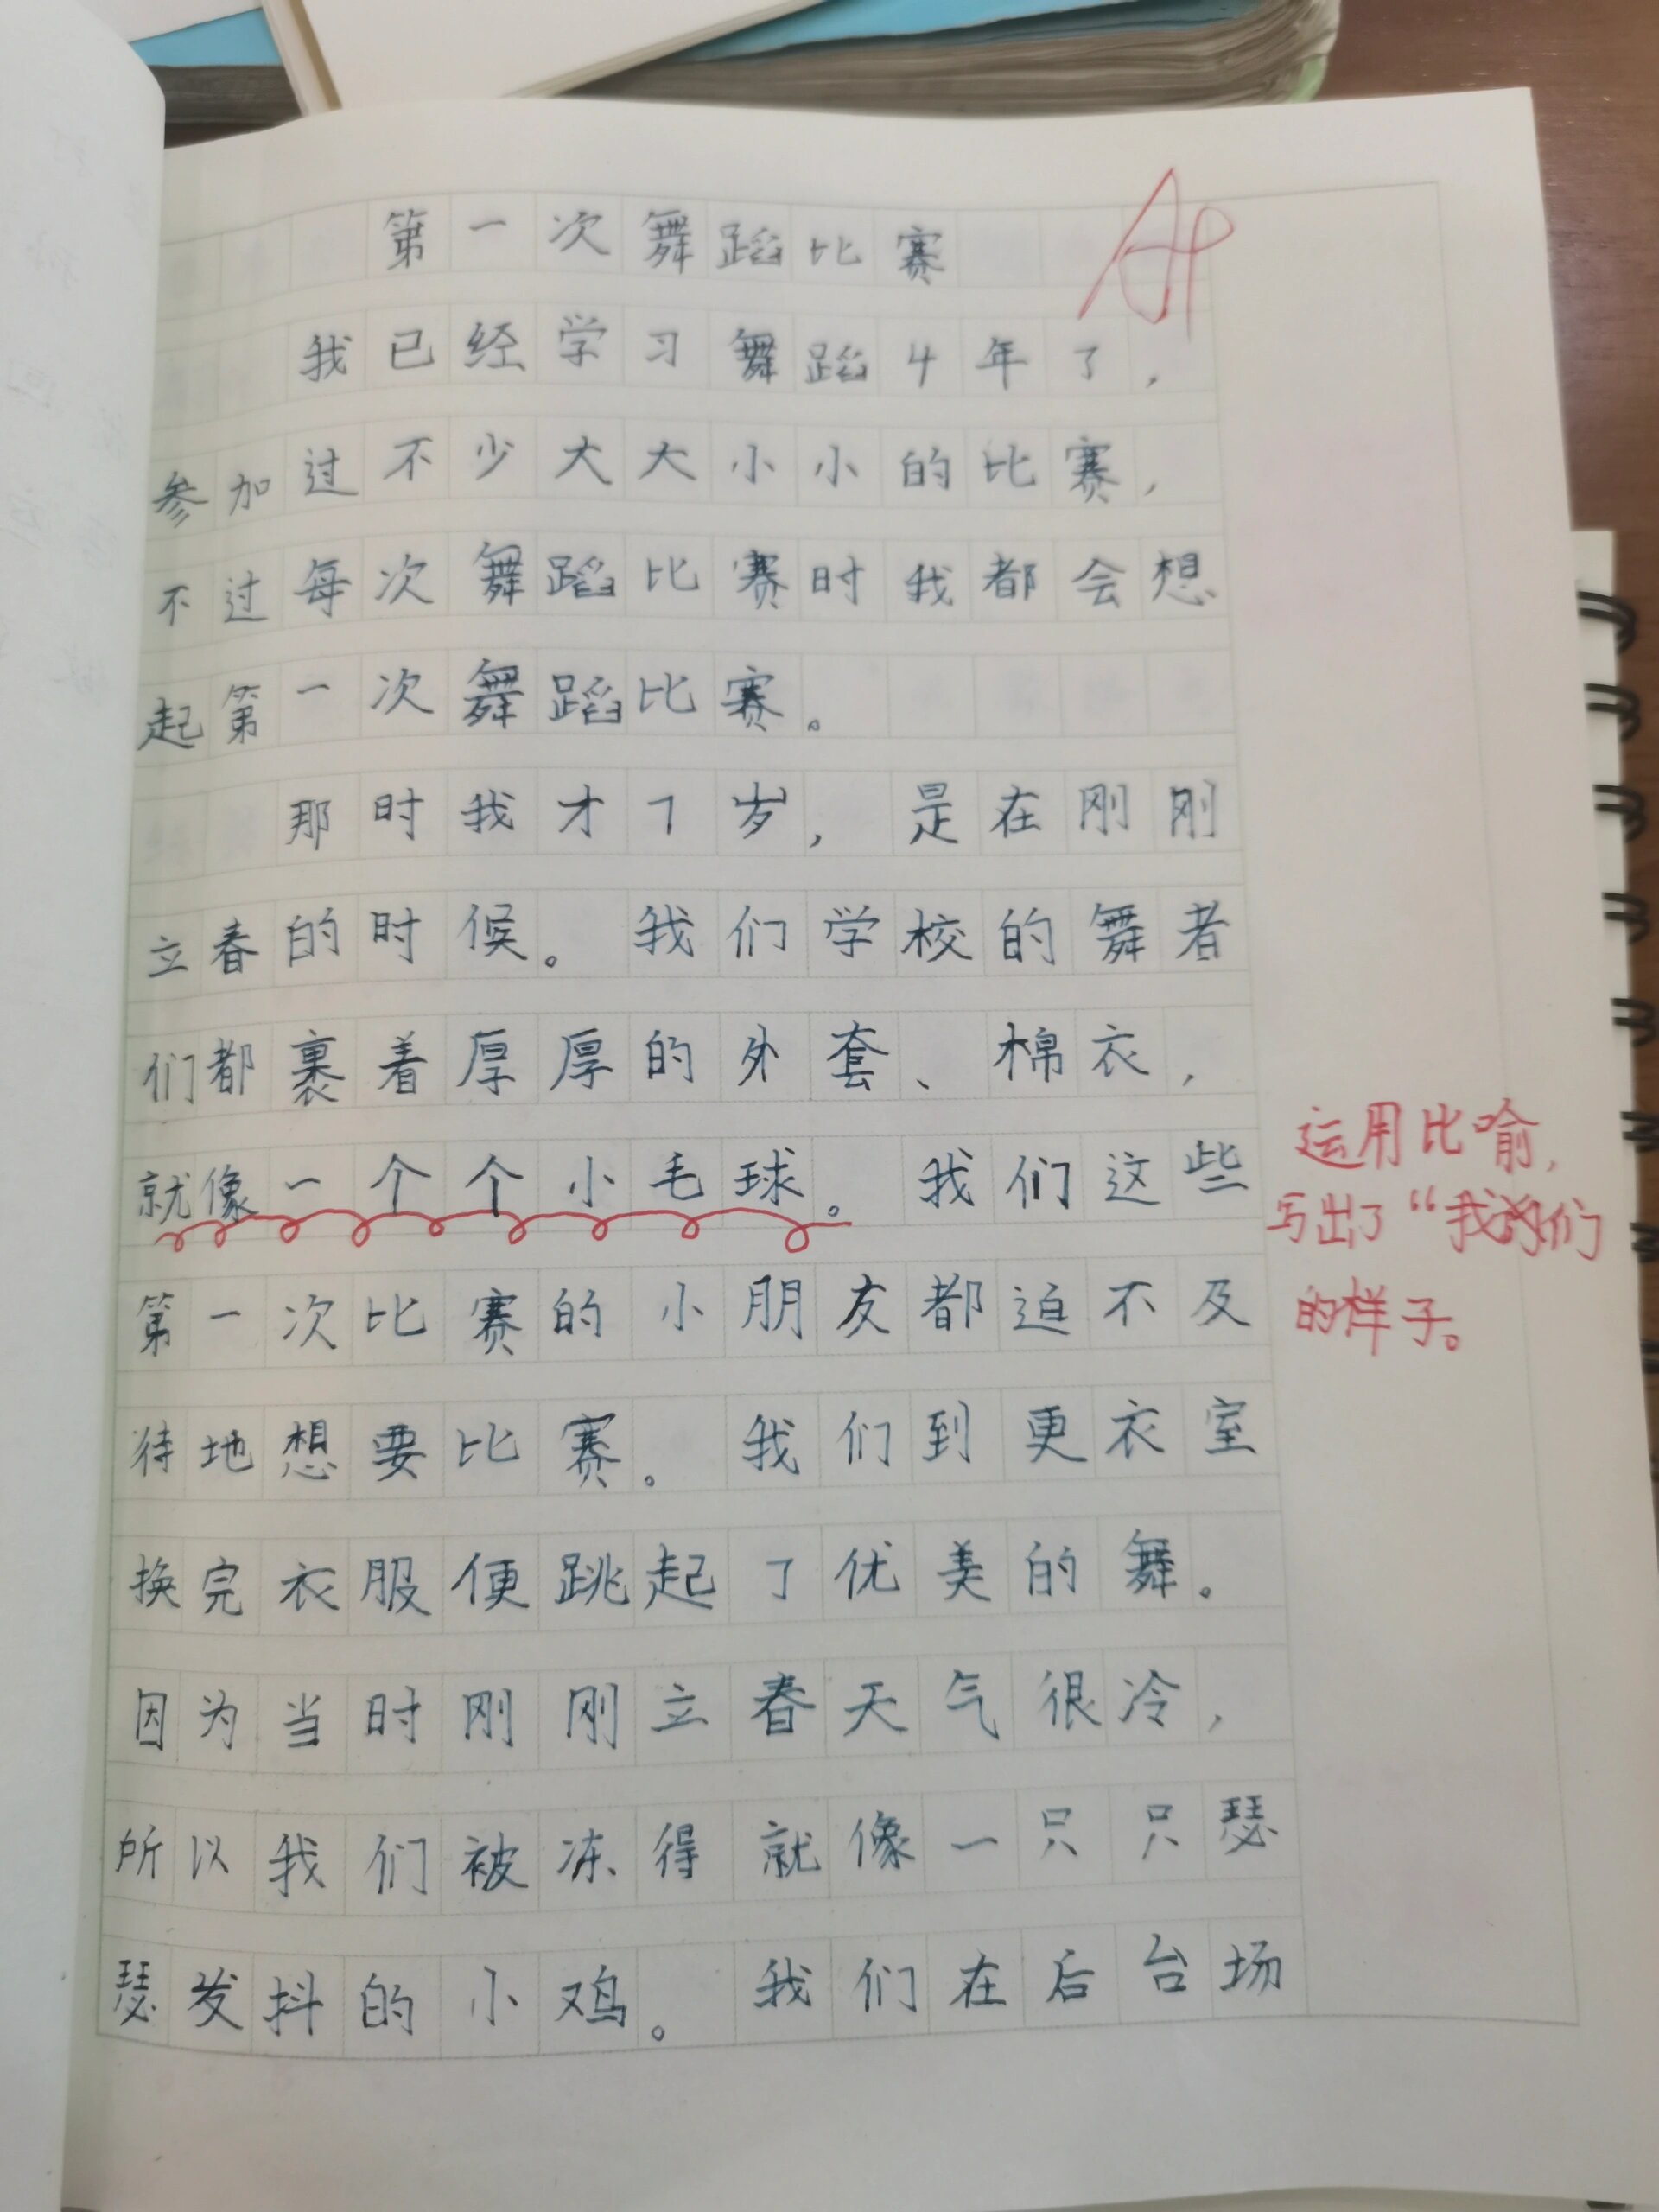 第一次舞蹈比赛
我已经学习舞蹈4年了，
参加过不少大大小小的比赛，
不过每次舞蹈比赛时我都会想
起第一次舞蹈比赛。
那时我才7岁，是在刚刚
立春的时候。我们学校的舞者
们都裹着厚厚的外套、棉衣，
就像一个个小毛球。我们这些
第一次比赛的小朋友都迫不及
待地想要比赛。我们到更衣室
换完衣服便跳起了优美的舞。
因为当时刚刚立春天气很冷，
所以我们被冻得就像一只只瑟
瑟发抖的小鸡。我们在后台场
运用比喻，
写出了“我们
的样子。